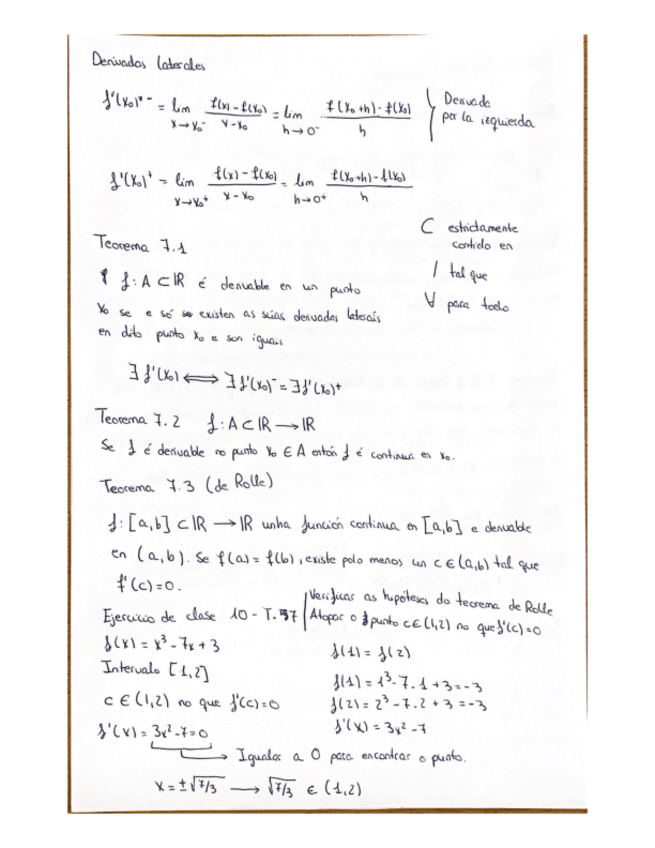 Derivadas laterales
f'(x₀)⁻ = lim x→x₀⁻ f(x) - f(x₀) / x - x₀ = lim h→0⁻ f(x₀+h) - f(x₀) / h
Derivada
por la izquierda
f'(x₀)⁺ = lim x→x₀⁺ f(x) - f(x₀) / x - x₀ = lim h→0⁺ f(x₀+h) - f(x₀) / h
⊂ estrictamente
contido en
/ tal que
∀ para todo
Teorema 7.1
f: A ⊂ ℝ é derivable en un punto
x₀ se e só se existen as súas derivadas laterais
en dito punto x₀ e son iguais
∃ f'(x₀) ⟺ ∃ f'(x₀)⁻ = ∃ f'(x₀)⁺
Teorema 7.2 f: A ⊂ ℝ → ℝ
Se f é derivable no punto x₀ ∈ A entón f é continua en x₀.
Teorema 7.3 (de Rolle)
f: [a,b] ⊂ ℝ → ℝ unha función continua en [a,b] e derivable
en (a,b). Se f(a) = f(b), existe polo menos un c ∈ (a,b) tal que
f'(c) = 0.
Ejercicio de clase 10 - T.
Verificar as hipóteses do teorema de Rolle
Atopar o punto c ∈ (1,2) no que f'(c) = 0
f(x) = x³ - 7x + 3
Intervalo [1,2]
c ∈ (1,2) no que f'(c) = 0
f'(x) = 3x² - 7 = 0
f(1) = f(2)
f(1) = 1³ - 7.1 + 3 = -3
f(2) = 2³ - 7.2 + 3 = -3
f'(x) = 3x² - 7
→ Igualar a 0 para encontrar o punto.
x = ±√7/3 → √7/3 ∈ (1,2)